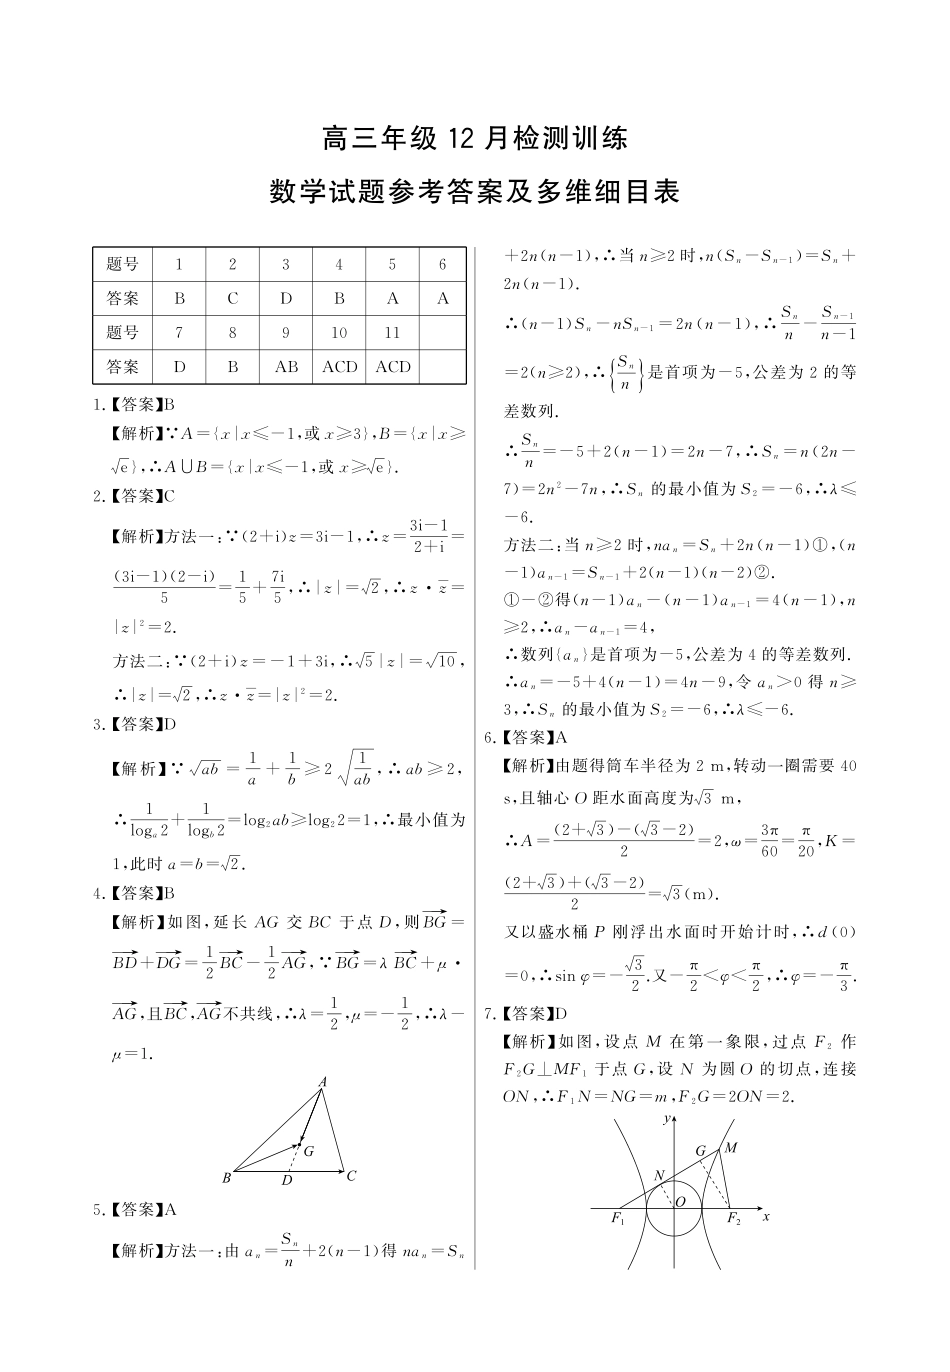 高三年级 12 月检测训练
数学试题参考答案及多维细目表
题号 1 2 3 4 5 6
答案 B C D B A A
题号 7 8 9 10 11
答案 D B AB ACD ACD
1.【答案】B
【解析】∵A={x|x≤-1,或x≥3},B={x|x≥
√e},∴A∪B={x|x≤-1,或x≥√e}.
2.【答案】C
【解析】方法一:∵(2+i)z=3i-1,∴z=(3i-1)/(2+i)=
(3i-1)(2-i)/5=1/5+7i/5,∴|z|=√2,∴z·z̄=
|z|²=2.
方法二:∵(2+i)z=-1+3i,∴√5|z|=√10,
∴|z|=√2,∴z·z̄=|z|²=2.
3.【答案】D
【解析】∵√ab=1/a+1/b≥2√(1/ab),∴ab≥2,
∴1/logₐ2+1/log_b2=log₂ab≥log₂2=1,∴最小值为
1,此时a=b=√2.
4.【答案】B
【解析】如图,延长 AG 交 BC 于点 D,则BG→=
BD→+DG→=1/2BC→-1/2AG→,∵BG→=λBC→+μ·
AG→,且BC→,AG→不共线,∴λ=1/2,μ=-1/2,∴λ-
μ=1.
A
G
B D C
5.【答案】A
【解析】方法一:由aₙ=Sₙ/n+2(n-1)得naₙ=Sₙ
+2n(n-1),∴当n≥2时,n(Sₙ-Sₙ₋₁)=Sₙ+
2n(n-1).
∴(n-1)Sₙ-nSₙ₋₁=2n(n-1),∴Sₙ/n-Sₙ₋₁/(n-1)
=2(n≥2),∴{Sₙ/n}是首项为-5,公差为 2 的等
差数列.
∴Sₙ/n=-5+2(n-1)=2n-7,∴Sₙ=n(2n-
7)=2n²-7n,∴Sₙ 的最小值为S₂=-6,∴λ≤
-6.
方法二:当n≥2时,naₙ=Sₙ+2n(n-1)①,(n
-1)aₙ₋₁=Sₙ₋₁+2(n-1)(n-2)②.
①-②得(n-1)aₙ-(n-1)aₙ₋₁=4(n-1),n
≥2,∴aₙ-aₙ₋₁=4,
∴数列{aₙ}是首项为-5,公差为 4 的等差数列.
∴aₙ=-5+4(n-1)=4n-9,令aₙ>0得n≥
3,∴Sₙ 的最小值为S₂=-6,∴λ≤-6.
6.【答案】A
【解析】由题得筒车半径为 2 m,转动一圈需要 40
s,且轴心 O 距水面高度为√3 m,
∴A=((2+√3)-(√3-2))/2=2,ω=3π/60=π/20,K=
((2+√3)+(√3-2))/2=√3(m).
又以盛水桶 P 刚浮出水面时开始计时,∴d(0)
=0,∴sin φ=-√3/2.又-π/2<φ<π/2,∴φ=-π/3.
7.【答案】D
【解析】如图,设点 M 在第一象限,过点 F₂ 作
F₂G⊥MF₁ 于点 G,设 N 为圆 O 的切点,连接
ON,∴F₁N=NG=m,F₂G=2ON=2.
y
G M
N
O
F₁ F₂ x